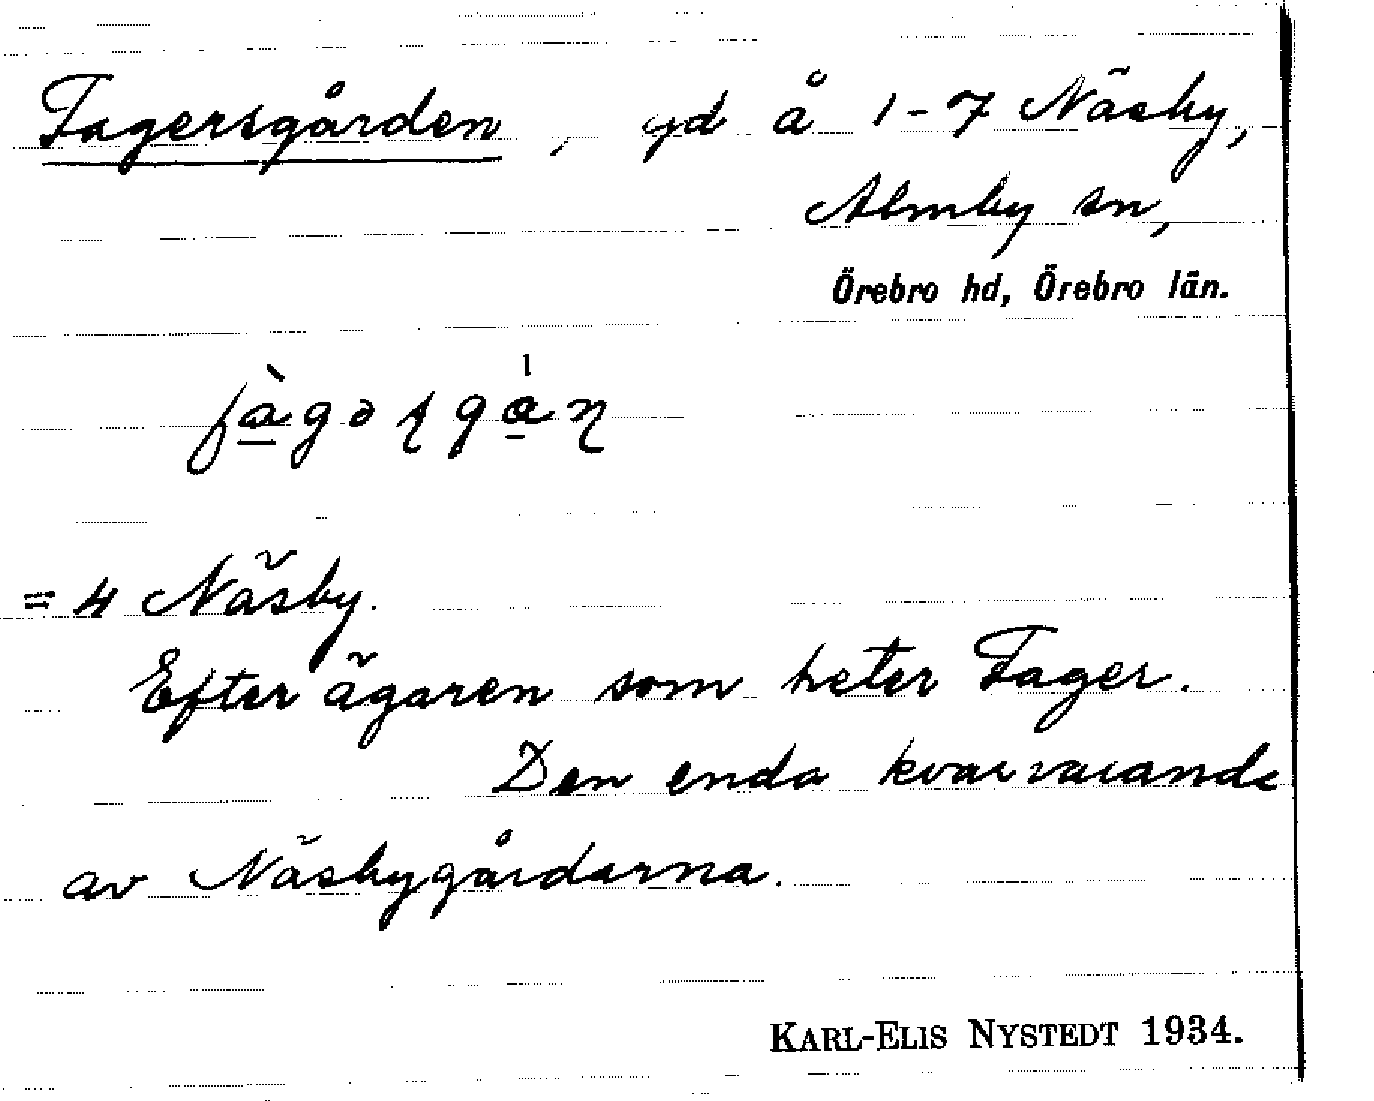 Fagersgården, gd å 1-7 Näsby,
Almby sn,
Örebro hd, Örebro län.
= 4 Näsby.
Efter ägaren som heter Fager.
Den enda kvarvarande
av Näsbygårdarna.
KARL-ELIS NYSTEDT 1934.